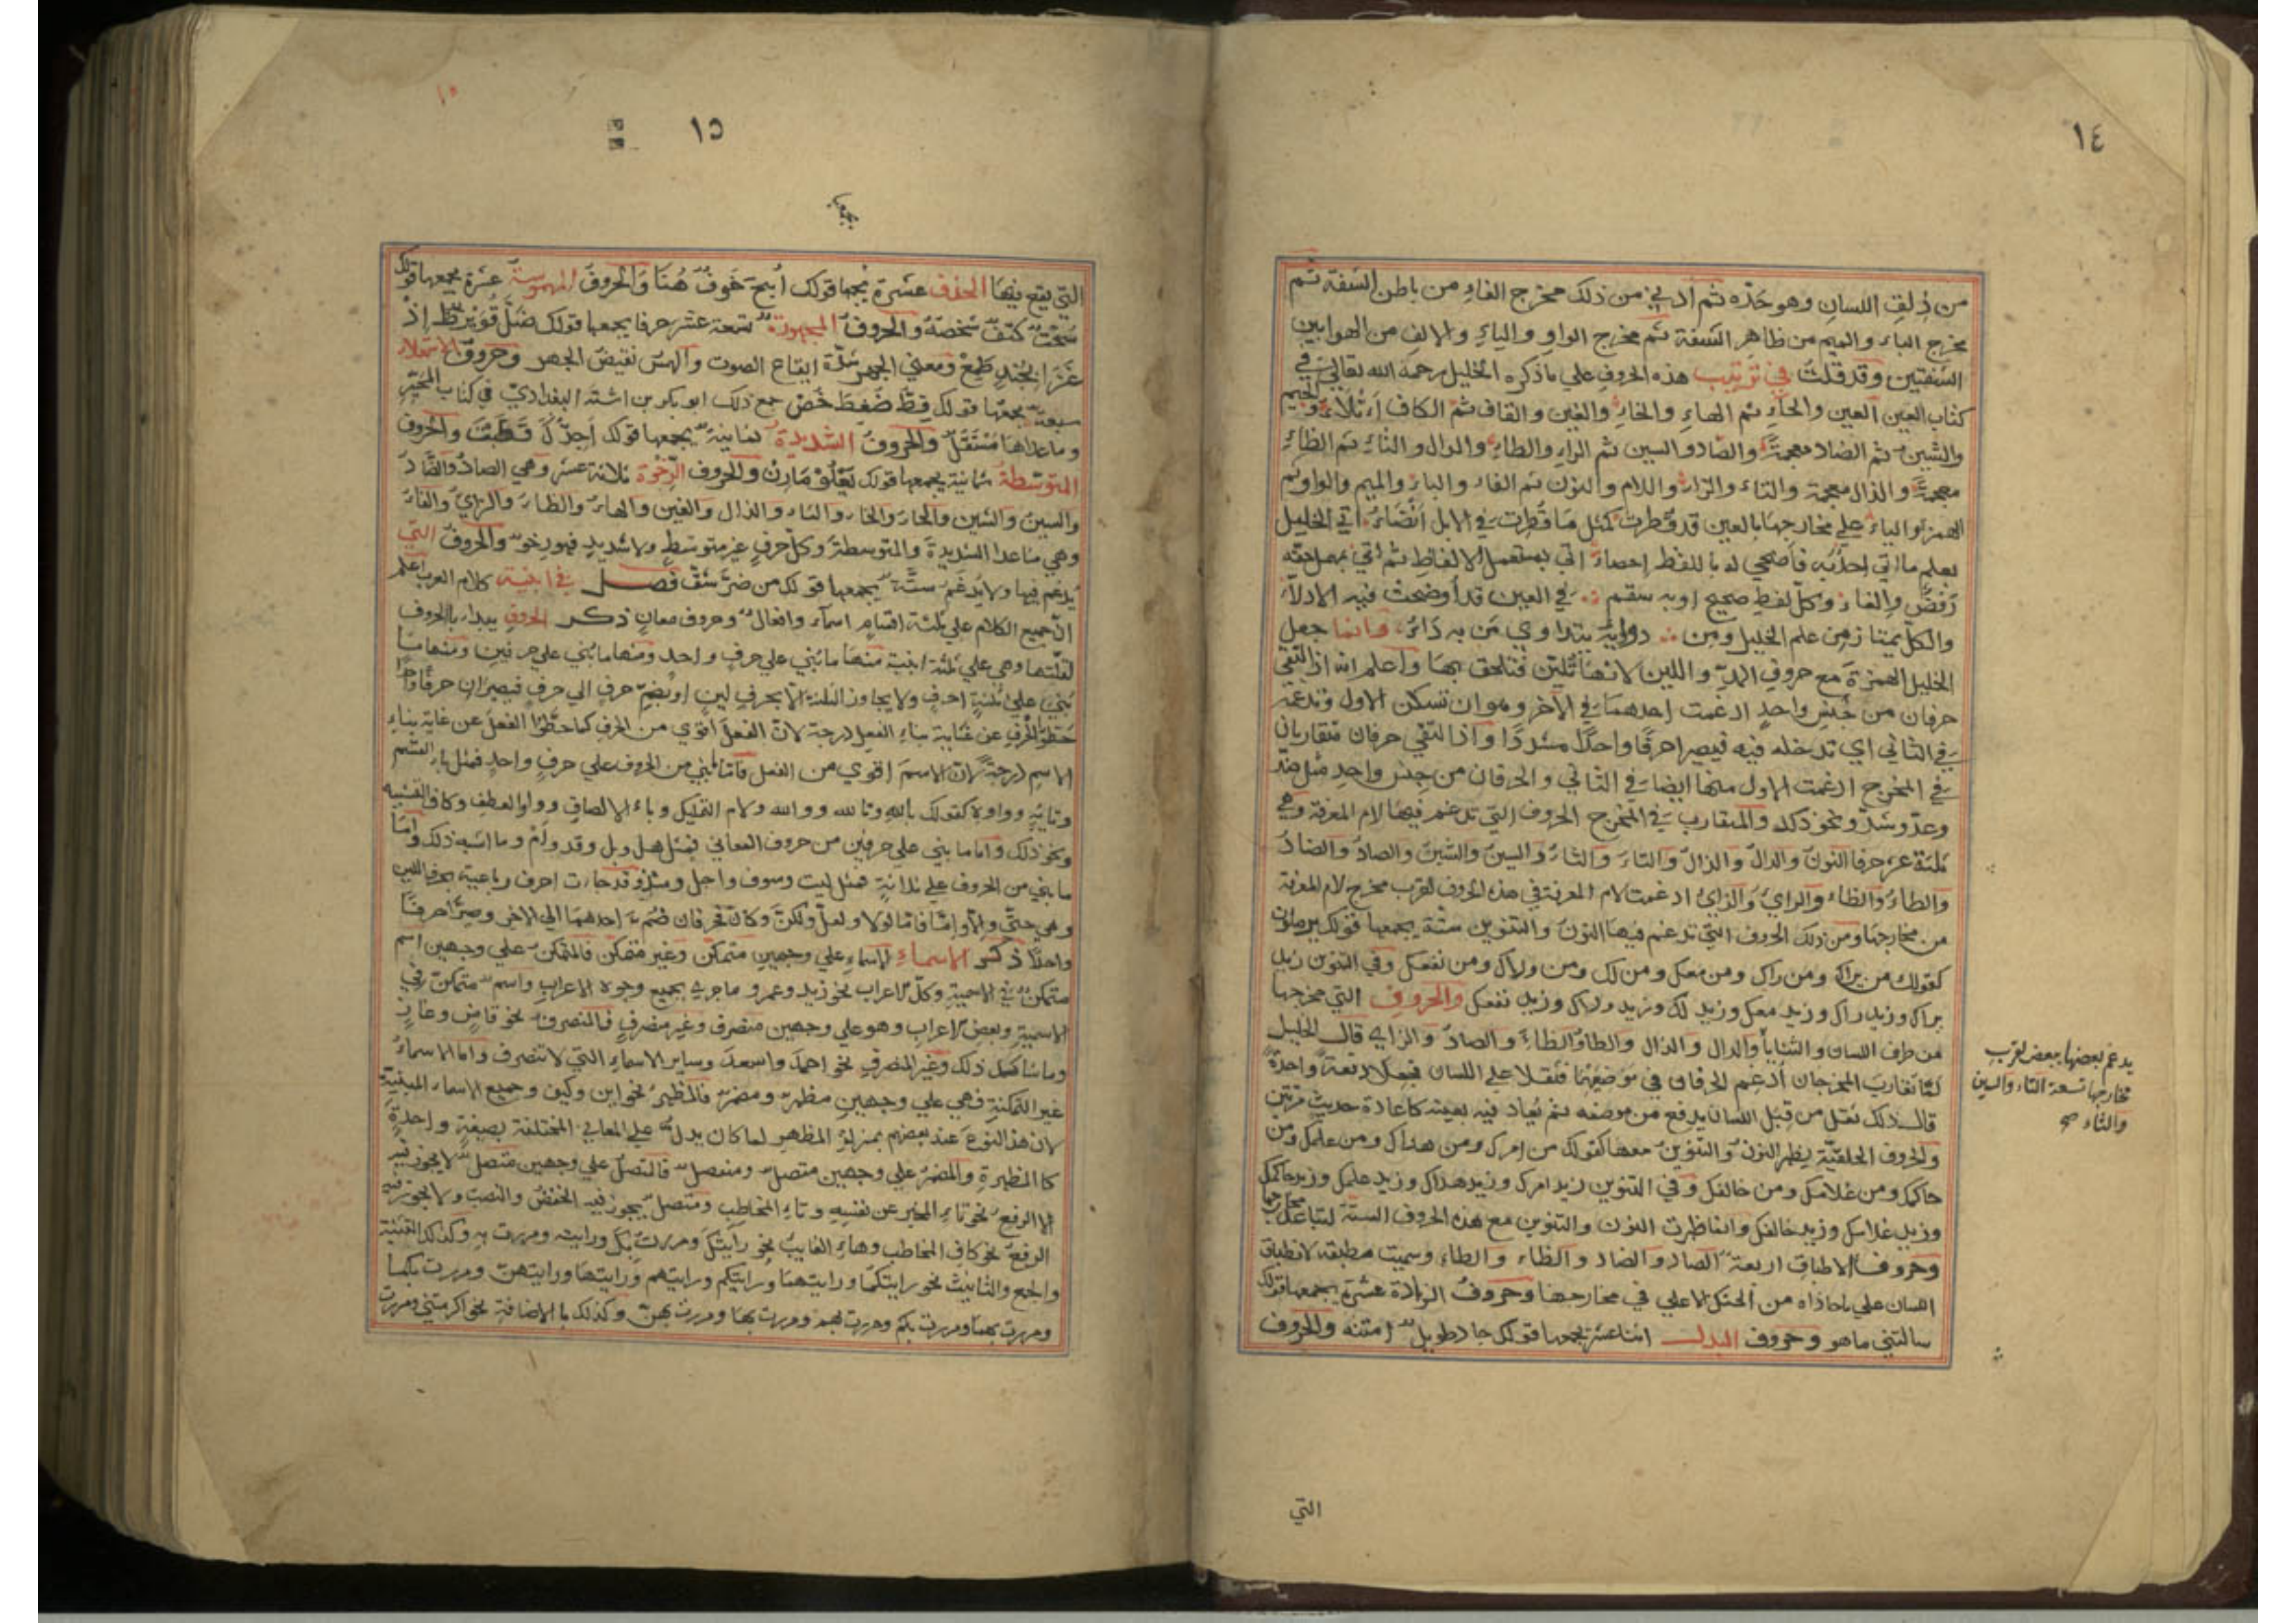 ١٤
من ذلق اللسان وهو حَدّه ثم أدنى من ذلك مخرج الفاءِ من باطن الشفة ثم
مخرج الباء والميم من ظاهر الشفة ثم مخرج الواو والياءِ والالف من الهوا بين
الشفتين وقد قلتُ في ترتيب هذه الحروف علي ما ذكره الخليل رحمة الله تعالى في
كتاب العين العين والحاءِ ثم الهاءِ والخاءِ والغين والقاف ثم الكاف أثلاءٌ والجيم
والشين ثم الضاد معجمةً والصاد والسين ثم الراءِ والطاءِ والدال والثاءِ ثم الظاءِ
معجمةً والذال معجمة والتاء والزاء واللام والنون ثم الفاء والباء والميم والواو ثم
الهمز والياء على مخارجها بالعين قد قطرت كمثل ما قطرت في الابل أنضاءُ أتى الخليل
بعلمٍ ما أتى احدٌ به فأضحى له باللفظ إحصاءُ أتى بمستعمل الالفاظ ثم أتى بمهمل حقه
رَفضٌ والغاءُ وكل لفظ صحيح او به سقم في العين قد أوضحت فيه الادلّاءُ
والكل يمتاز من علم الخليل ومن دوائه يتداوى مَن به دَاءُ وانما جعل
الخليل الهمزة مع حروف المدّ واللين لانها تُليَّن فتلحق بها واعلم انه اذا التقى
حرفان من جنس واحدٍ ادغمت احدهما في الآخر وهو ان تسكن الاول وتدغمه
في الثاني اي تدخله فيه فيصير احرفًا واحدًا مشددًا واذا التقى حرفان متقاربان
في المخرج ادغمت الاول منهما ايضا في الثاني والحرفان من جنس واحدٍ مثل مدّ
وعدّ وشدّ ونحو ذلك والمتقارب في المخرج الحروف التي تدغم فيها لام المعرفة وهي
ثلثة عشر حرفا النون والدال والذال والتاء والثاء والسين والشين والصاد والضاد
والطاء والظاء والراي والزاي ادغمت لام المعرفة في هذه الحروف لقرب مخرج لام المعرفة
من مخارجها ومن ذلك الحروف التي تدغم فيها النون والتنوين ستة يجمعها قولك يرملون
كقولك من يراك ومن راك ومن معك ومن لك ومن ولاك ومن نفعك وفي التنوين زيد
يراك وزيد راك وزيد معك وزيد لك وزيد ولاك وزيد نفعك والحروف التي مخرجها
من طرف اللسان والثنايا والدال والذال والطاء والظاء والصاد والزاي قال الخليل
لما تقارب المخرجان ادغم الحرفان في موضعهما فثقلا على اللسان فجعلا دفعة واحدة
قال ذلك ثقل من قبل اللسان يدفع من موضعه ثم يعاد فيه بعينه كاعادة حديث مرتين
والحروف الحلقيّة يظهر النون والتنوين معها كقولك من امرك ومن هداك ومن علمك ومن
حاكمك ومن غلامك ومن خالفك وفي التنوين زيد امرك وزيد هداك وزيد علمك وزيد حاكمك
وزيد غلامك وزيد خالفك وانما ظهرت النون والتنوين مع هذه الحروف الستة لتباعد مخارجها
وحروف الاطباق اربعة الصاد والضاد والظاء والطاء وسميت مطبقة لانطباق
اللسان علي ما حاذاه من الحنك الاعلي في مخارجها وحروف الزيادة عشرة يجمعها قولك
سالتني ماهو وحروف البدل اثنا عشر يجمعها قولك جاد طويل امتنه والحروف
يدغم بعضها ببعض لقرب
مخارجها تسعة التاء والسين
والثاء صح
التي
١٥
١٥
التي يقع فيها الحذف عشرة يجمعها قولك أبحَ خَوفٌ هُنَا والحروف المهموسة عشرة يجمعها قولك
سَكتَ كتفٌ شخصُهُ والحروف المجهورة تسعة عشر حرفا يجمعها قولك ضلَّ قُوَيزِظ إذ
غَزَا بجُندٍ طَمِعٌ ومعنى الجهر شدّة ايقاع الصوت والهمس نقيض الجهر وحروف الاستعلاء
سبعة يجمعها قولك قِظْ ضَغِطَ خَصٌ جمع ذلك ابو بكر بن اشتة البغدادي في كتاب المحبّر
وما عداها مُستَفلٌ والحروف الشديدة ثمانية يجمعها قولك أجدُكَ قَطبتَ والحروف
المتوسّطة ثمانية يجمعها قولك لَيَعْلُوْ مَارِنٌ والحروف الرّخوة ثلاثة عشر وهي الصاد والضاد
والسين والشين والحاء والخاء والثاء والذال والغين والهاء والظاء والزاي والفاء
وهي ما عدا الشديدة والمتوسطة وكل حرفٍ غير متوسّط ولا شديدٍ فهو رخو والحروف التي
يُدغم فيها ولا يُدغَم ستّة يجمعها قولك من ضرّ شفّ فصل في ابنية كلام العرب اعلم
انّ جميع الكلام علي ثلثة اقسام اسماء وافعال وحروف معانٍ ذكر الحروف يبداء بالحروف
لقلّتها وهي علي ثلثة ابنية منها ما بُني علي حرفٍ واحد ومنها ما بُني علي حرفين ومنها ما
بُني علي ثلثةِ احرفٍ ولا يجاوز الثلثة الّا بحرفي لينٍ او بضمّ حرفٍ الي حرفٍ فيصيران حرفًا واحدًا
حَطّوا الحرف عن غاية بناء الفعل درجة لان الفعل اقوي من الحرف كما حطّوا الفعل عن غاية بناءِ
الاسم درجةً لان الاسم اقوي من الفعل فامّا ما بني من الحروف علي حرفٍ واحدٍ فمثل باء القسم
وتائِه وواوه كقولك بالله وتالله ووالله ولام التمليك وباء الالصاق وواو العطف وكاف التشبيه
ونحو ذلك واما ما بني على حرفين من حروف المعاني فمثل هل وبل وقد ولم وما اشبه ذلك وامّا
ما بني من الحروف علي ثلاثةٍ فمثل ليت وسوف واجل ومثله وقد جاءت احرف رباعية بحرف اللين
وهي حتّى والّا وامّا فامّا لولا ولعلّ ولكنّ وكانّ فحرفان ضُمّ احدهما الي الاخر وصيرا حرفًا
واحدًا ذكر الاسماء الاسماءِ علي وجهين متمكّن وغير متمكّن فالمتمكن علي وجهين اسم
متمكّن في الاسمية وكلّ الاعراب نحو زيد وعمرو ما جري بجميع وجوه الاعراب واسم متمكّن في
الاسمية وبعض الاعراب وهو علي وجهين منصرف وغير منصرف فالمنصرف نحو قاضٍ وغازٍ
وما شاكل ذلك وغير المنصرف نحو احمد واسعد وساير الاسماءِ التي لا تنصرف واما الاسماءُ
غير المتمكنة فهي علي وجهين مظهر ومضمر فالمظهر نحو اين وكيف وجميع الاسماء المبنية
لان هذا النوع عند بعضهم بمنزلة المظهر لما كان يدل علي المعاني المختلفة بصيغةٍ واحدةٍ
كالمظهرة والمضمر علي وجهين متصل ومنفصل فالمتصل علي وجهين متصل لا يجوز فيه
الا الرفع نحو تاء المخبر عن نفسه وتاءِ المخاطب ومتصل يجوز فيه الخفض والنصب ولا يجوز فيه
الرفع نحو كاف المخاطب وهاء الغايب نحو رايتك ومررت بك ورايته ومررت به وكذلك التثنية
والجمع والتانيث نحو رايتكما ورايتهما ورايتكم ورايتهم ورايتها ورايتهنّ ومررت بكما
ومررت بهما ومررت بكم ومررت بهم ومررت بها ومررت بهنّ وكذلك يا الاضافة نحو اكرمتني ومررت